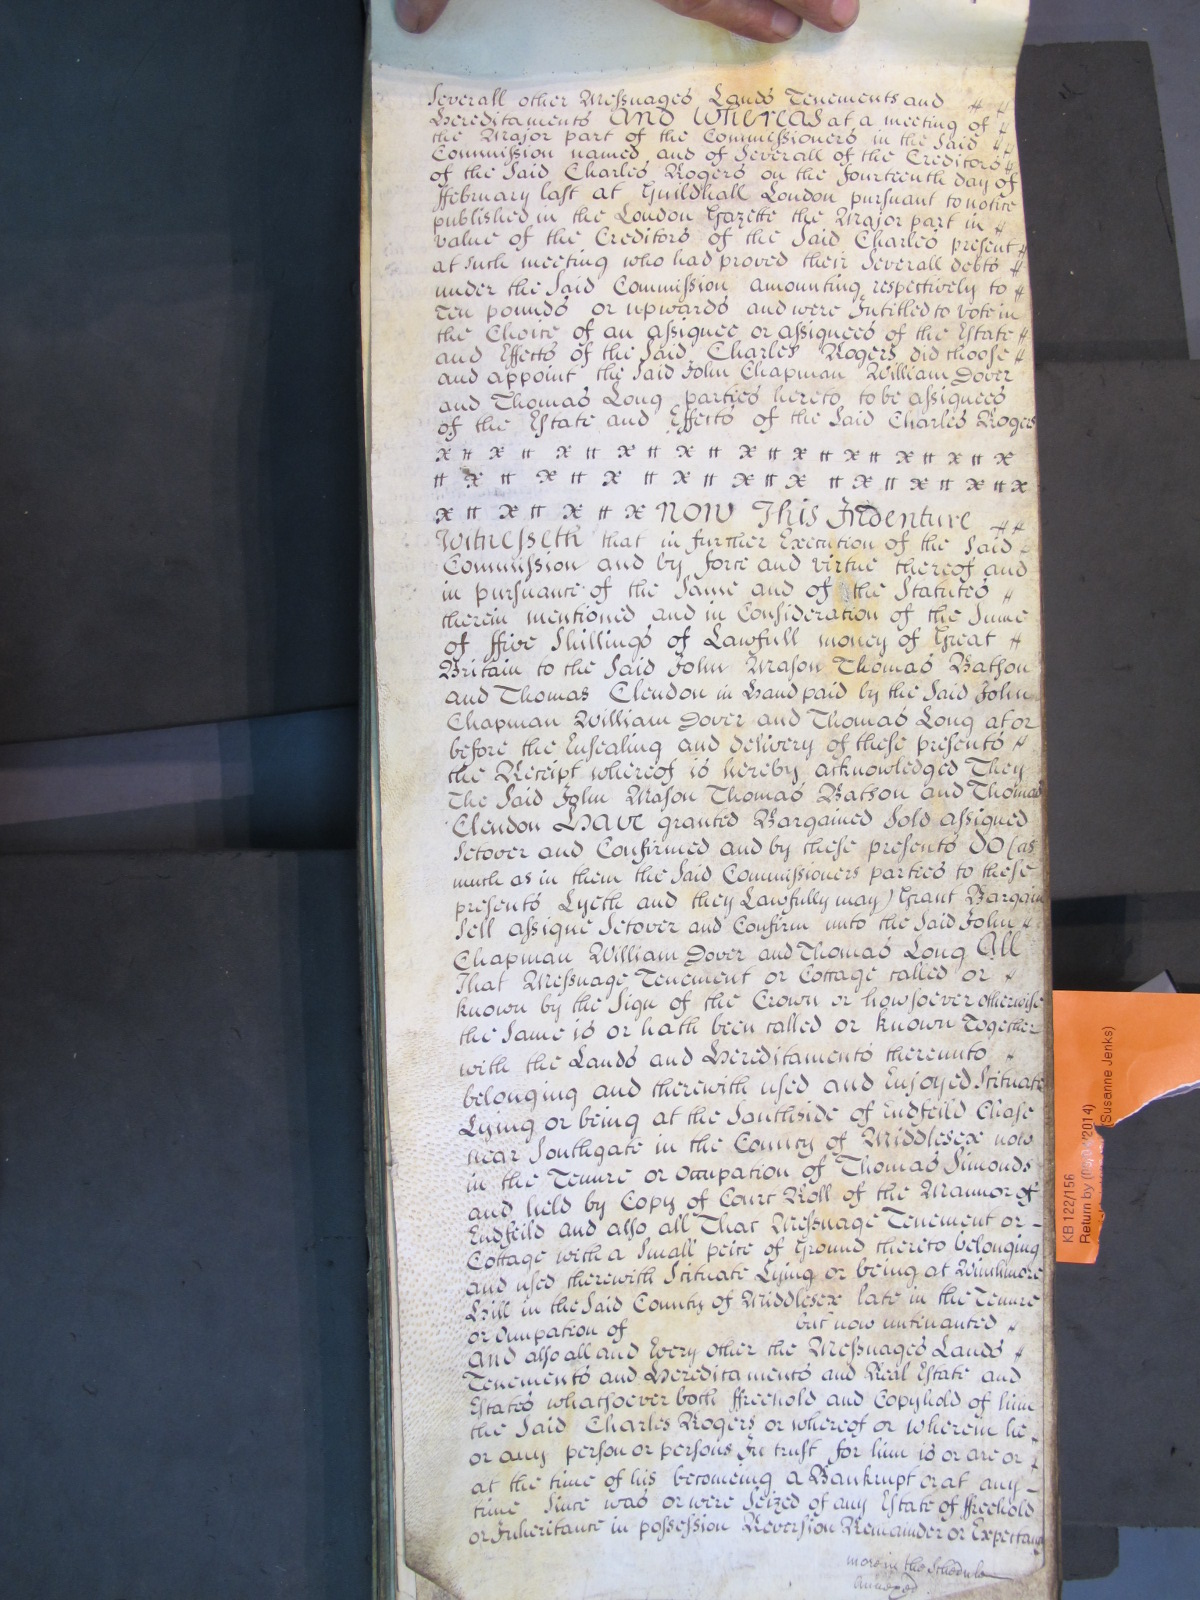 Severall other Messuages Lands Tenements and
Hereditaments And Whereas at a meeting of
the Major part of the Commissioners in the said
Commission named and of Severall of the Creditors
of the said Charles Rogers on the fourteenth day of
ffebruary last at Guildhall London pursuant to notice
published in the London Gazette the Major part in
value of the Creditors of the said Charles present
at such meeting who had proved their Severall debts
under the said Commission amounting respectively to
Ten pounds or upwards and were Intitled to vote in
the Choice of an assignee or assignees of the Estate
and Effects of the said Charles Rogers did choose
and appoint the said John Chapman William Dover
and Thomas Long parties hereto to be assignees
of the Estate and Effects of the said Charles Rogers
Now This Indenture
Witnesseth that in further Execution of the said
Commission and by force and virtue thereof and
in pursuance of the same and of the Statutes
therein mentioned and in Consideration of the Sume
of ffive Shillings of Lawfull money of Great
Britain to the said John Mason Thomas Batson
and Thomas Clendon in Hand paid by the said John
Chapman William Dover and Thomas Long at or
before the Ensealing and delivery of these presents
the Receipt whereof is hereby acknowledged They
The said John Mason Thomas Batson and Thomas
Clendon Have granted Bargained Sold assigned
Setover and Confirmed and by these presents Do (as
much as in them the said Commissioners parties to these
presents Lyeth and they Lawfully may) Grant Bargain
Sell assigne Setover and Confirm unto the said John
Chapman William Dover and Thomas Long All
That Messuage Tenement or Cottage called or
known by the Sign of the Crown or howsoever otherwise
the same is or hath been called or known Together
with the Lands and Hereditaments thereunto
belonging and therewith used and Enjoyed Scituate
Lying or being at the Southside of Endfeild Chase
near Southgate in the County of Middlesex now
in the Tenure or Occupation of Thomas Simonds
and held by Copy of Court Roll of the Mannor of
Endfeild and also all That Messuage Tenement or
Cottage with a Small peice of Ground thereto belonging
and used therewith Scituate Lying or being at Winchmore
Hill in the said County of Middlesex late in the Tenure
or Occupation of but now untenanted
And also all and Every other the Messuages Lands
Tenements and Hereditaments and Real Estate and
Estates whatsoever both ffreehold and Copyhold of him
the said Charles Rogers or whereof or wherein he
or any person or persons In trust for him is or are or
at the time of his becomeing a Bankrupt or at any
time Since was or were Seized of any Estate of ffreehold
or Inheritance in possession Reversion Remainder or Expectancy
more in the Schedule
annexed
KB 122/156
Return by (2014)
(Susanne Jenks)